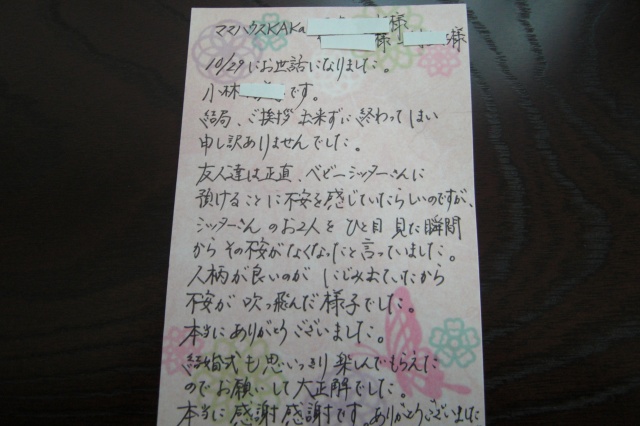 ママハウスKAKa 様
様 様
10/29にお世話になりました。
小林 です。
結局、ご挨拶出来ずに終わってしまい
申し訳ありませんでした。
友人達は正直、ベビーシッターさんに
預けることに不安を感じていたらしいのですが、
シッターさんのお2人をひと目見た瞬間
からその不安がなくなったと言っていました。
人柄が良いのがにじみおていたから
不安が吹っ飛んだ様子でした。
本当にありがとうございました。
結婚式も思いっきり楽しんでもらえた
のでお願いして大正解でした。
本当に感謝感謝です。ありがとうございました